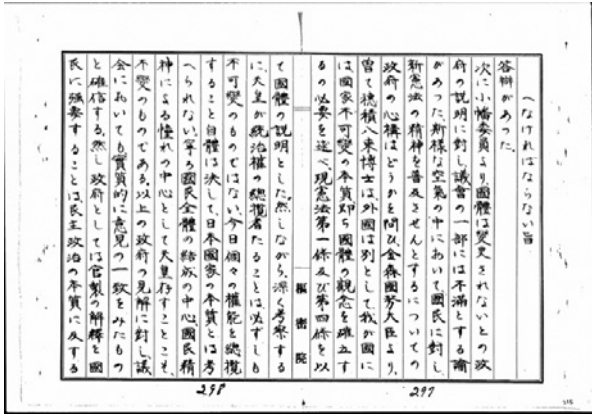 へなければならない旨
答辯があつた。
次に小幡委員より、國體は変更されないとの政
府の説明に対し、議會の一部には不滿とする論
があつた。斯様な空氣の中において、國民に対し、
新憲法の精神を普及させんとするについての
政府の心構はどうかを問ひ、金森國務大臣より、
曽て穂積八束博士は、外國は別として、我が國に
は國家不可變の本質即ち國體の観念を確立す
るの必要を述べ、現憲法第一條及び第四條を以
樞密院
て國體の説明とした。然しながら、深く考察する
に、天皇が統治權の總攬者たることは、必ずしも
不可變のものではない。今日個々の權能を總攬
すること自體は決して、日本國家の本質とは考
へられない。寧ろ國民全體の結成の中心、國民精
神による憧れの中心として天皇存すことこそ、
不變のものである。以上の政府の見解に対し、議
会においても實質的に意見の一致をみたもの
と確信する。然し政府としては官製の解釋を國
民に強要することは、民主政治の本質に反する
298
297